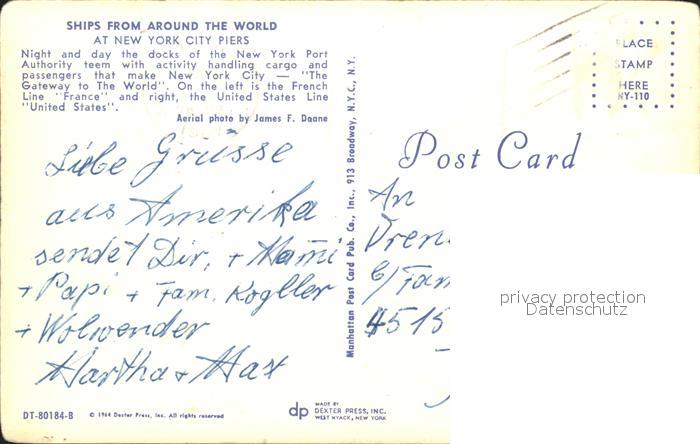 SHIPS FROM AROUND THE WORLD
AT NEW YORK CITY PIERS
Night and day the docks of the New York Port
Authority teem with activity handling cargo and
passengers that make New York City — "The
Gateway to The World". On the left is the French
Line "France" and right, the United States Line
"United States".
Aerial photo by James F. Doane
Liebe Grüsse
aus Amerika
sendet Dir, + Mami
+ Papi + Fam. Kogller
+ Wolwender
Martha + Max
DT-80184-B
© 1964 Dexter Press, Inc. All rights reserved
Manhattan Post Card Pub. Co., Inc., 913 Broadway, N.Y.C., N.Y.
dp MADE BY
DEXTER PRESS, INC.
WEST NYACK, NEW YORK
PLACE
STAMP
HERE
NY-110
Post Card
An
Vren
C/ Fam
4515
privacy protection
Datenschutz